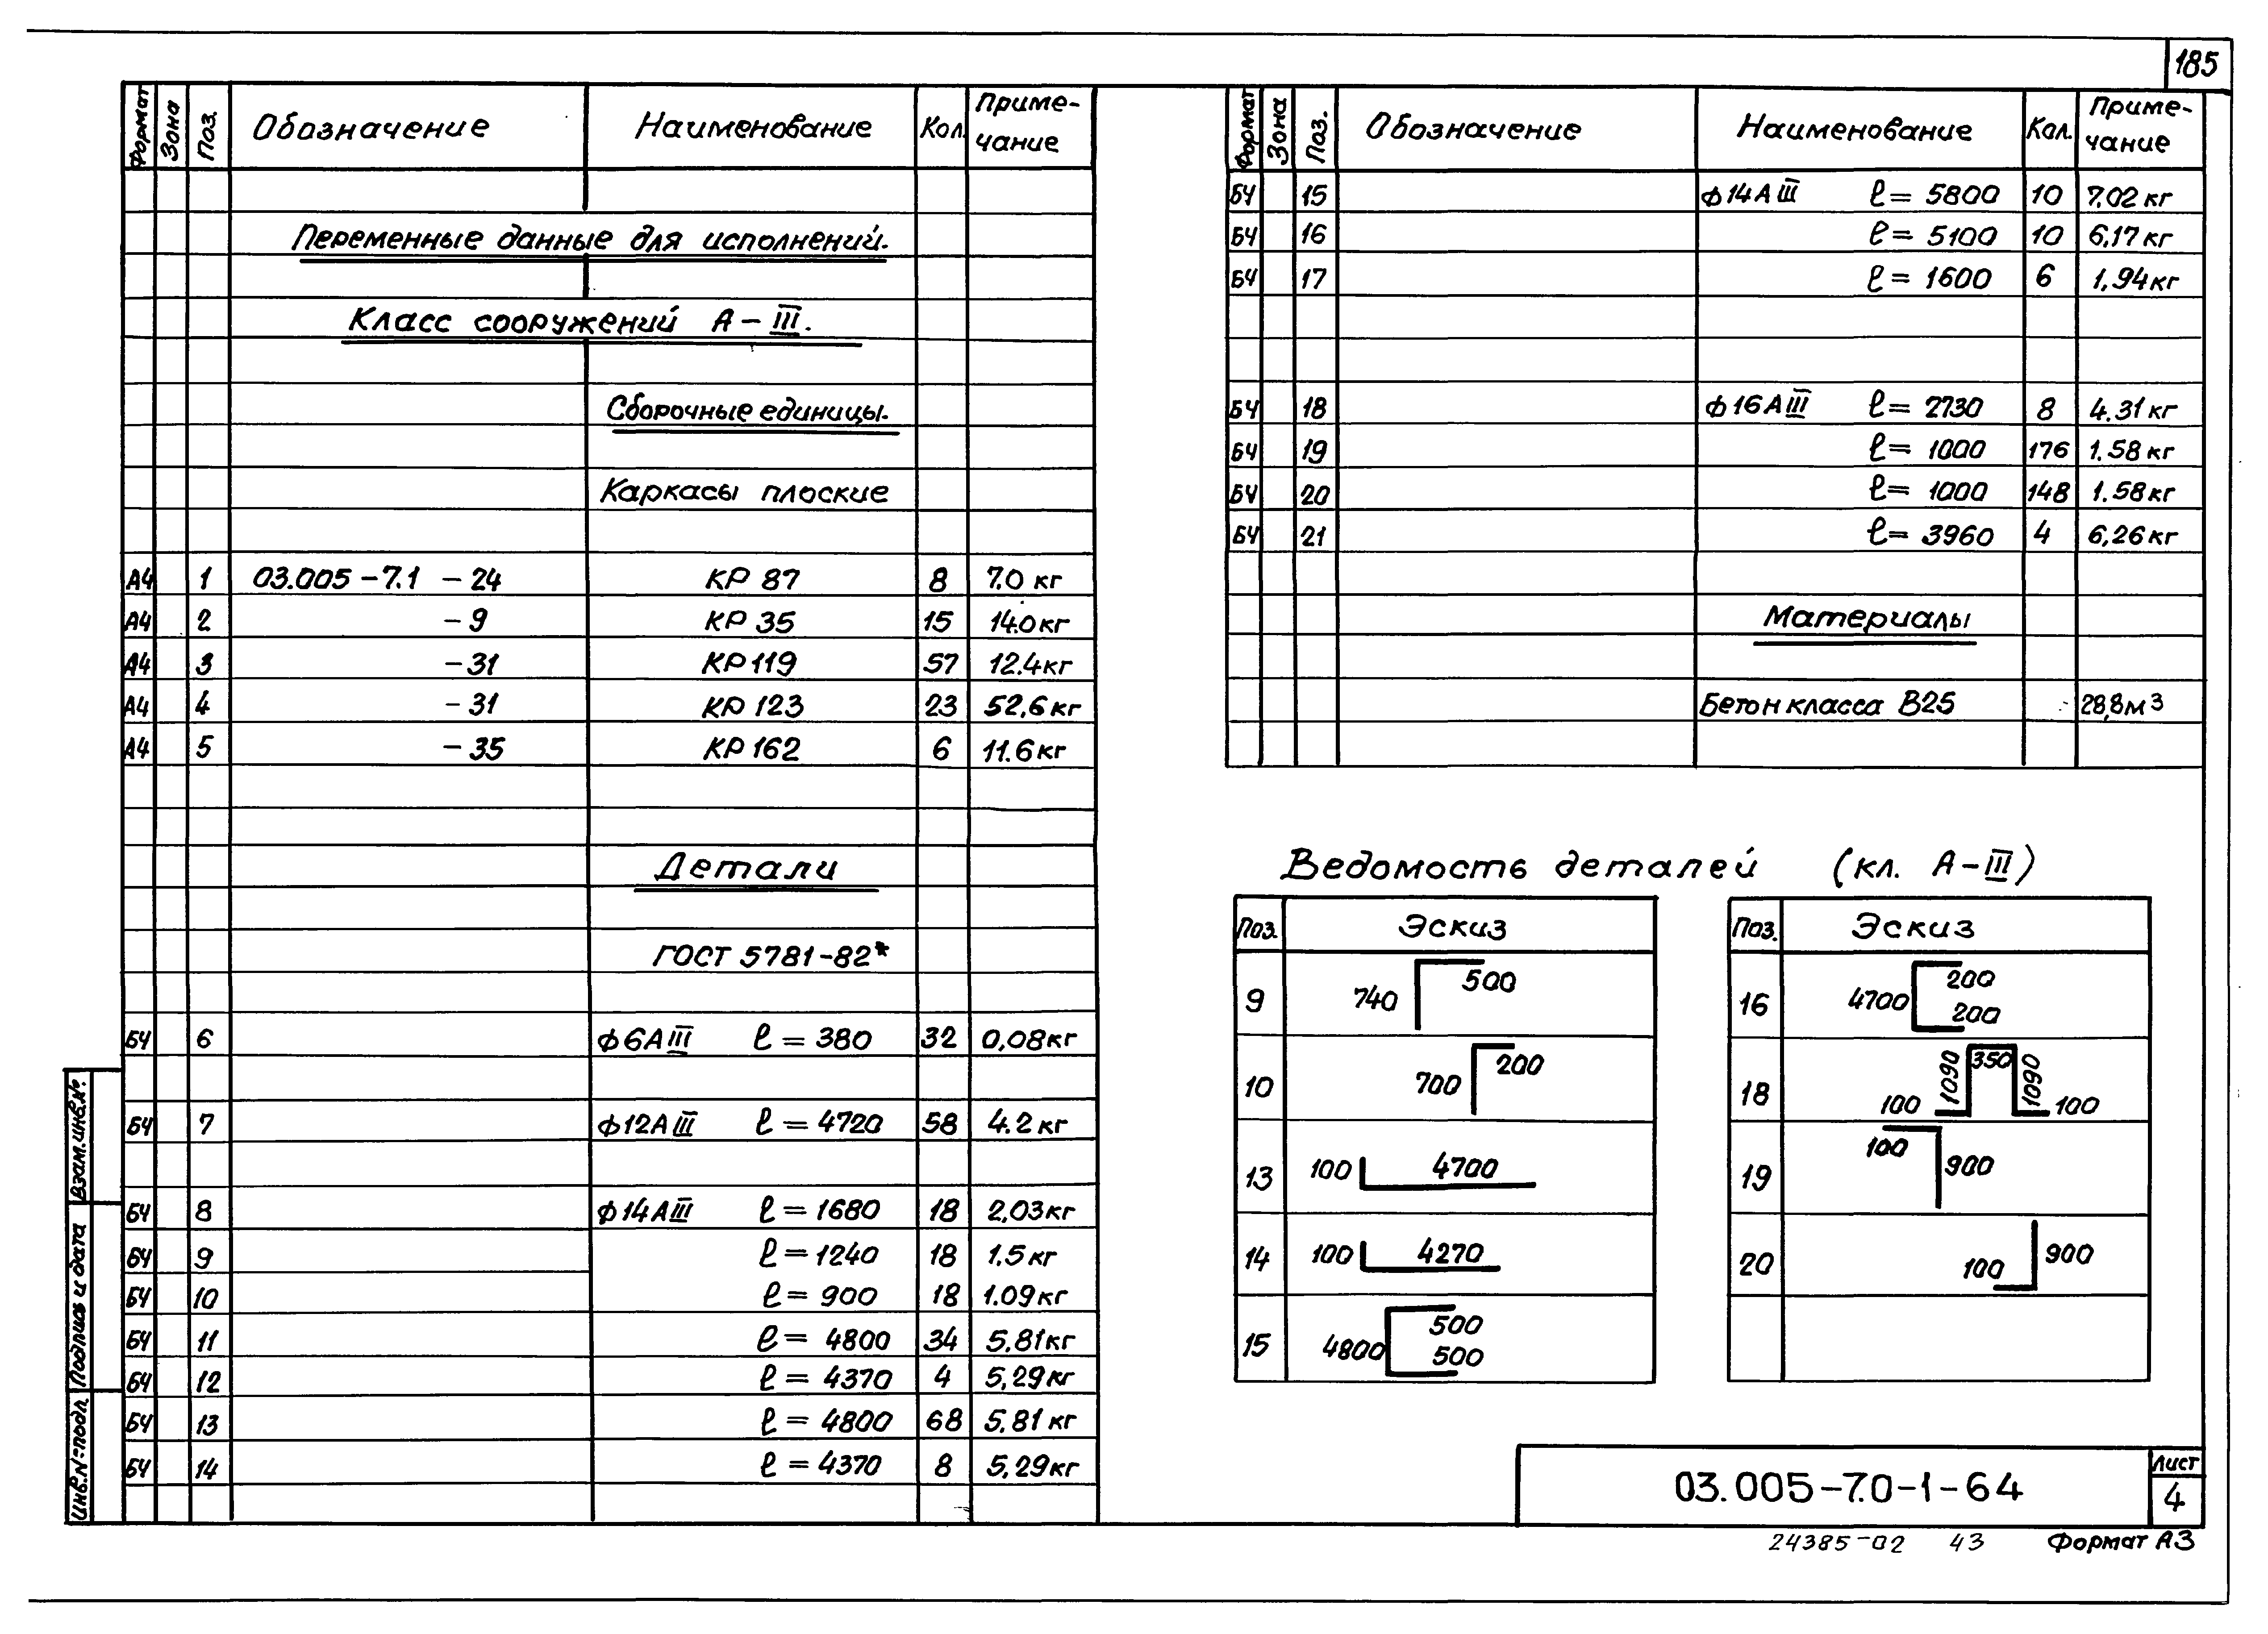 185
Формат Зона Поз. Обозначение Наименование Кол. Приме-
чание
Переменные данные для исполнений.
Класс сооружений А-III.
Сборочные единицы.
Каркасы плоские
А4 1 03.005-7.1 -24 КР 87 8 7.0 кг
А4 2 -9 КР 35 15 14.0 кг
А4 3 -31 КР 119 57 12.4 кг
А4 4 -31 КР 123 23 52,6 кг
А4 5 -35 КР 162 6 11.6 кг
Детали
ГОСТ 5781-82*
БЧ 6 ф6АIII ℓ = 380 32 0,08кг
БЧ 7 ф12АIII ℓ = 4720 58 4.2 кг
БЧ 8 ф14АIII ℓ = 1680 18 2,03кг
БЧ 9 ℓ = 1240 18 1.5 кг
БЧ 10 ℓ = 900 18 1.09 кг
БЧ 11 ℓ = 4800 34 5,81кг
БЧ 12 ℓ = 4370 4 5,29кг
БЧ 13 ℓ = 4800 68 5,81 кг
БЧ 14 ℓ = 4370 8 5,29кг
Формат Зона Поз. Обозначение Наименование Кол. Приме-
чание
БЧ 15 ф14АIII ℓ = 5800 10 7,02 кг
БЧ 16 ℓ = 5100 10 6,17 кг
БЧ 17 ℓ = 1600 6 1,94кг
БЧ 18 ф16АIII ℓ = 2730 8 4.31 кг
БЧ 19 ℓ = 1000 176 1.58 кг
БЧ 20 ℓ = 1000 148 1.58 кг
БЧ 21 ℓ = 3960 4 6,26 кг
Материалы
Бетон класса В25 28,8м3
Ведомость деталей (кл. А-III)
Поз. Эскиз
9 740 500
10 700 200
13 100 4700
14 100 4270
15 4800 500 500
Поз. Эскиз
16 4700 200 200
18 100 1090 350 1090 100
19 100 900
20 100 900
Взам.инв.№.
Подпись и дата
Инв.№подл.
03.005-7.0-1-64
Лист
4
24385-02 43 Формат А3